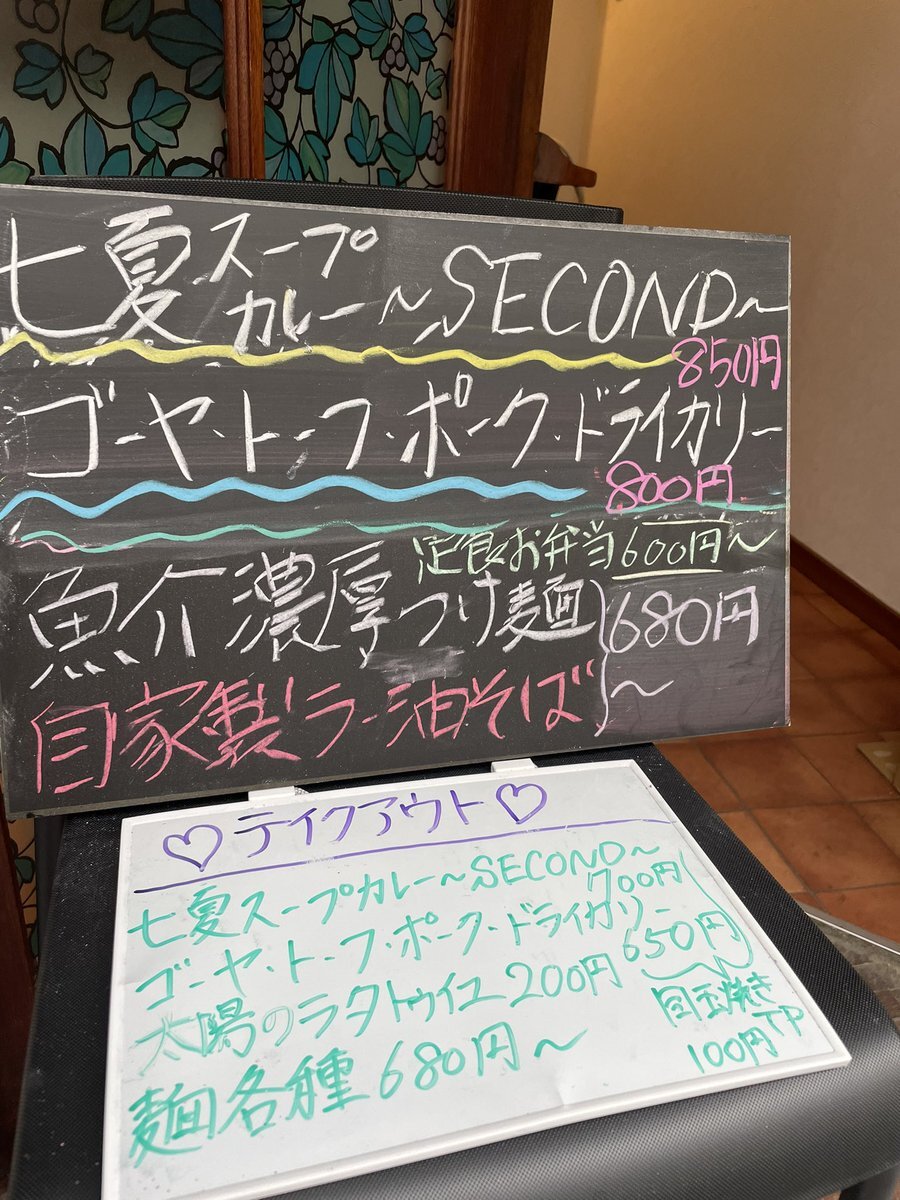 七夏スープカレー～SECOND～
850円
ゴーヤ・トーフ・ポーク・ドライカリー
800円
定食&お弁当600円～
魚介濃厚つけ麺
自家製ラー油そば
680円～
♡テイクアウト♡
七夏スープカレー～SECOND～
700円
ゴーヤ・トーフ・ポーク・ドライカリー
650円
太陽のラタトゥイユ 200円
目玉焼きTP
100円
麺各種 680円～